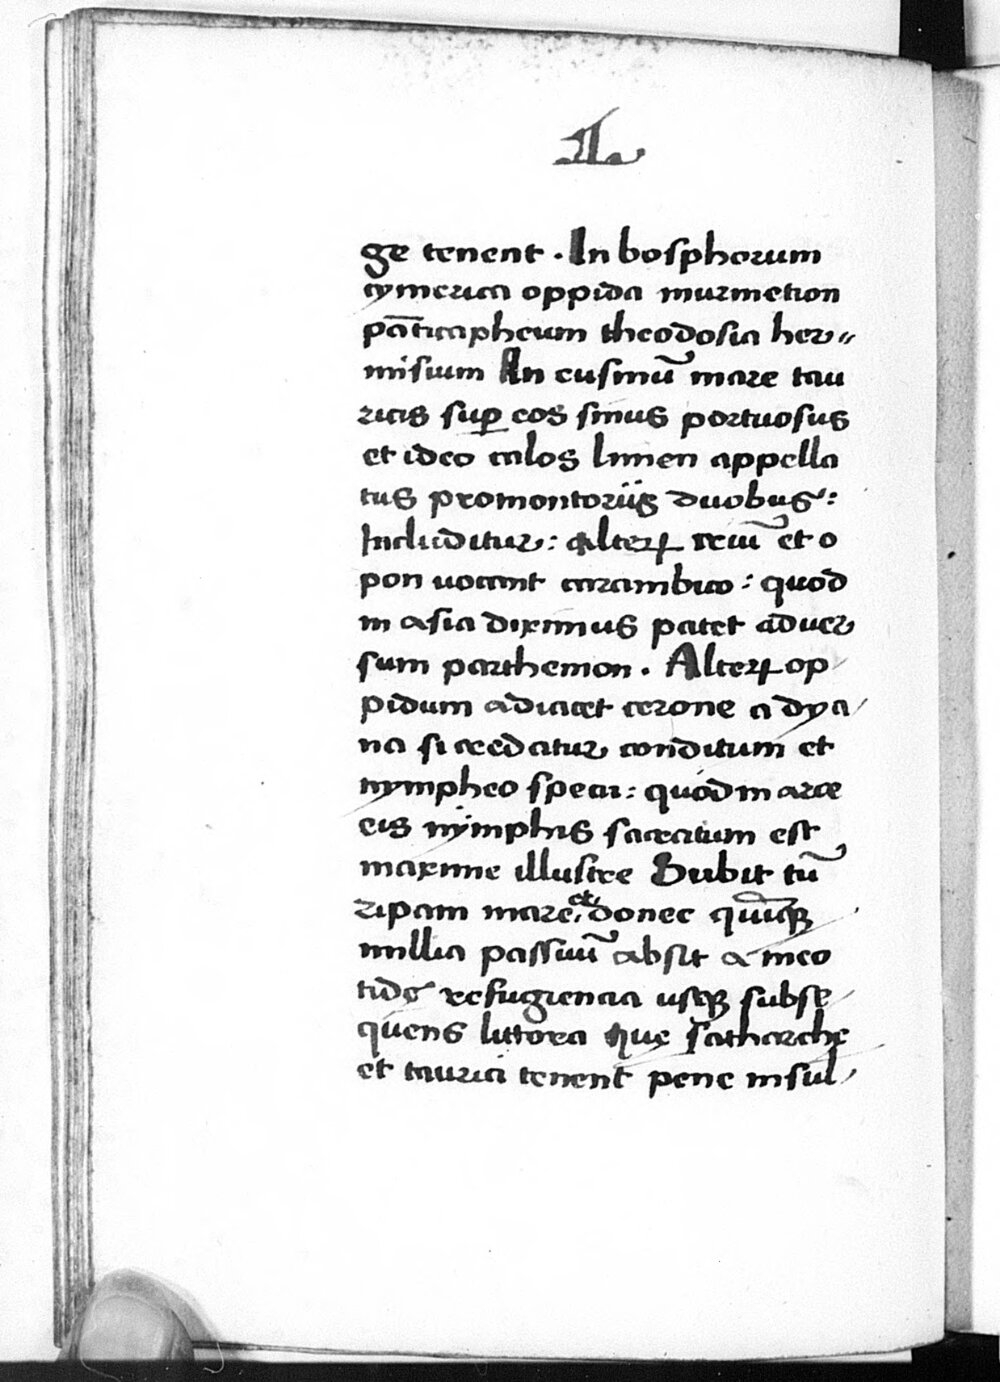 I
ge tenent . In bosphorum
cymerica oppida murmetion
pāticapheum theodosia her〃
misium In eusinū mare tau
ricis suꝑ eos sinus portuosus
et ideo calos limen appella
tus promontoriis duobus:
Includitur: alterꝝ reiū et o
pon uocant carambico: quod
in asia diximus patet aduer
sum parthemon . Alterꝝ op
pidum adiacet cerone a dya
na si creditur conditum et
nympheo specu: quod in arce
eis nimphis sacratum est
maxime illustre Subit tū
ripam mare et donec quīqꝫ
millia passuū absit a meo
tide refugiencia usqꝫ subse
quens littora que satharche
et taurici tenent pene insul